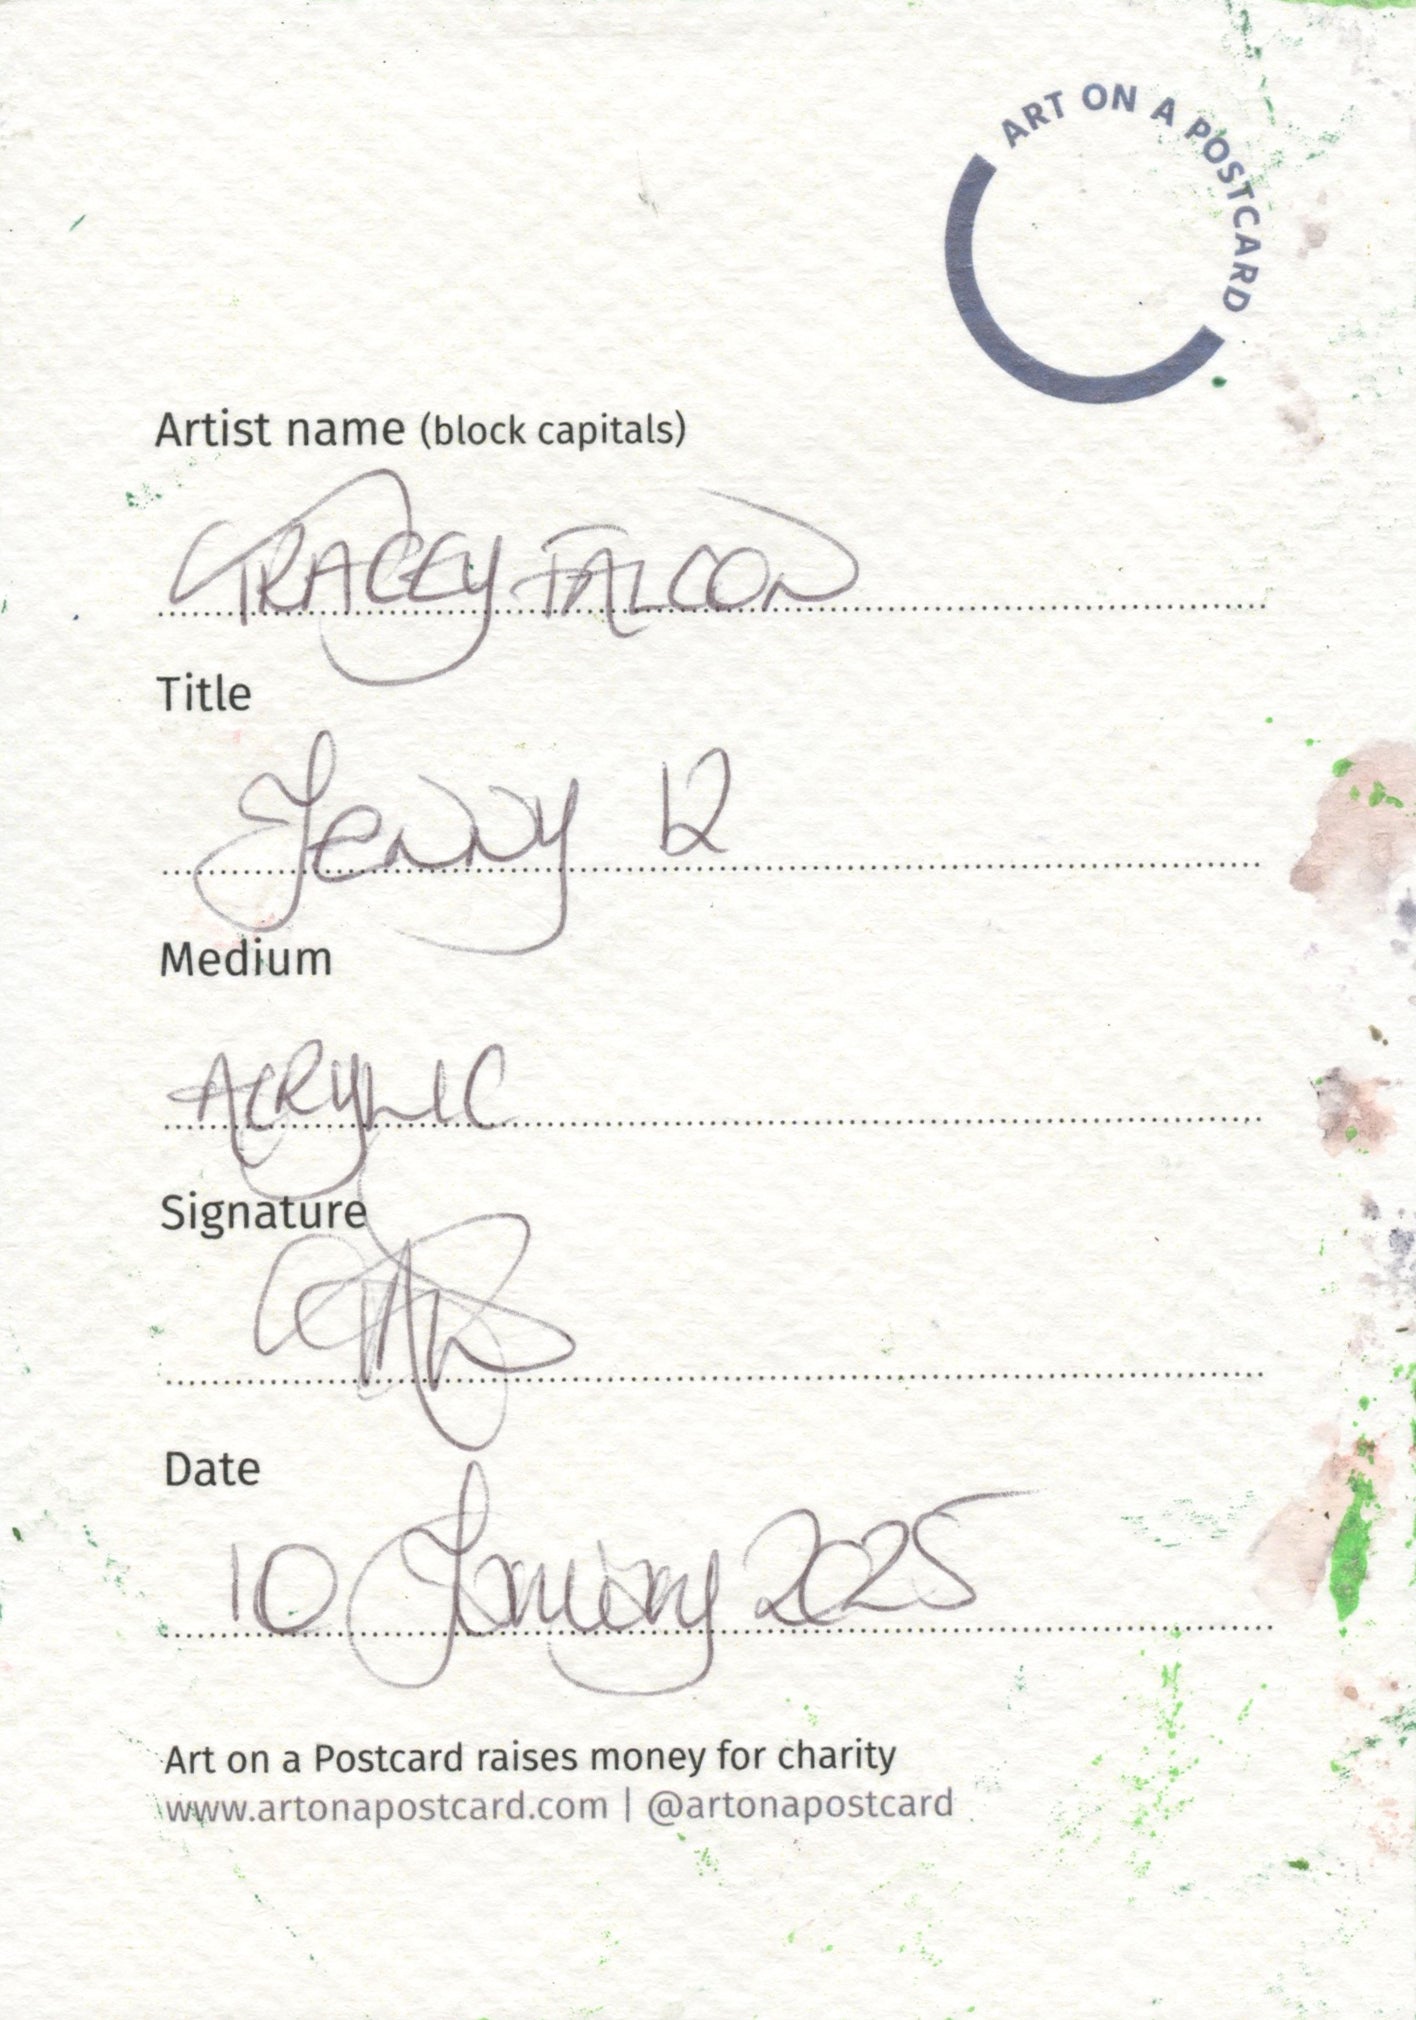 ART ON A POSTCARD
Artist name (block capitals)
TRACEY FALCON
Title
Jenny 12
Medium
ACRYLIC
Signature
Date
10 January 2025
Art on a Postcard raises money for charity
www.artonapostcard.com | @artonapostcard